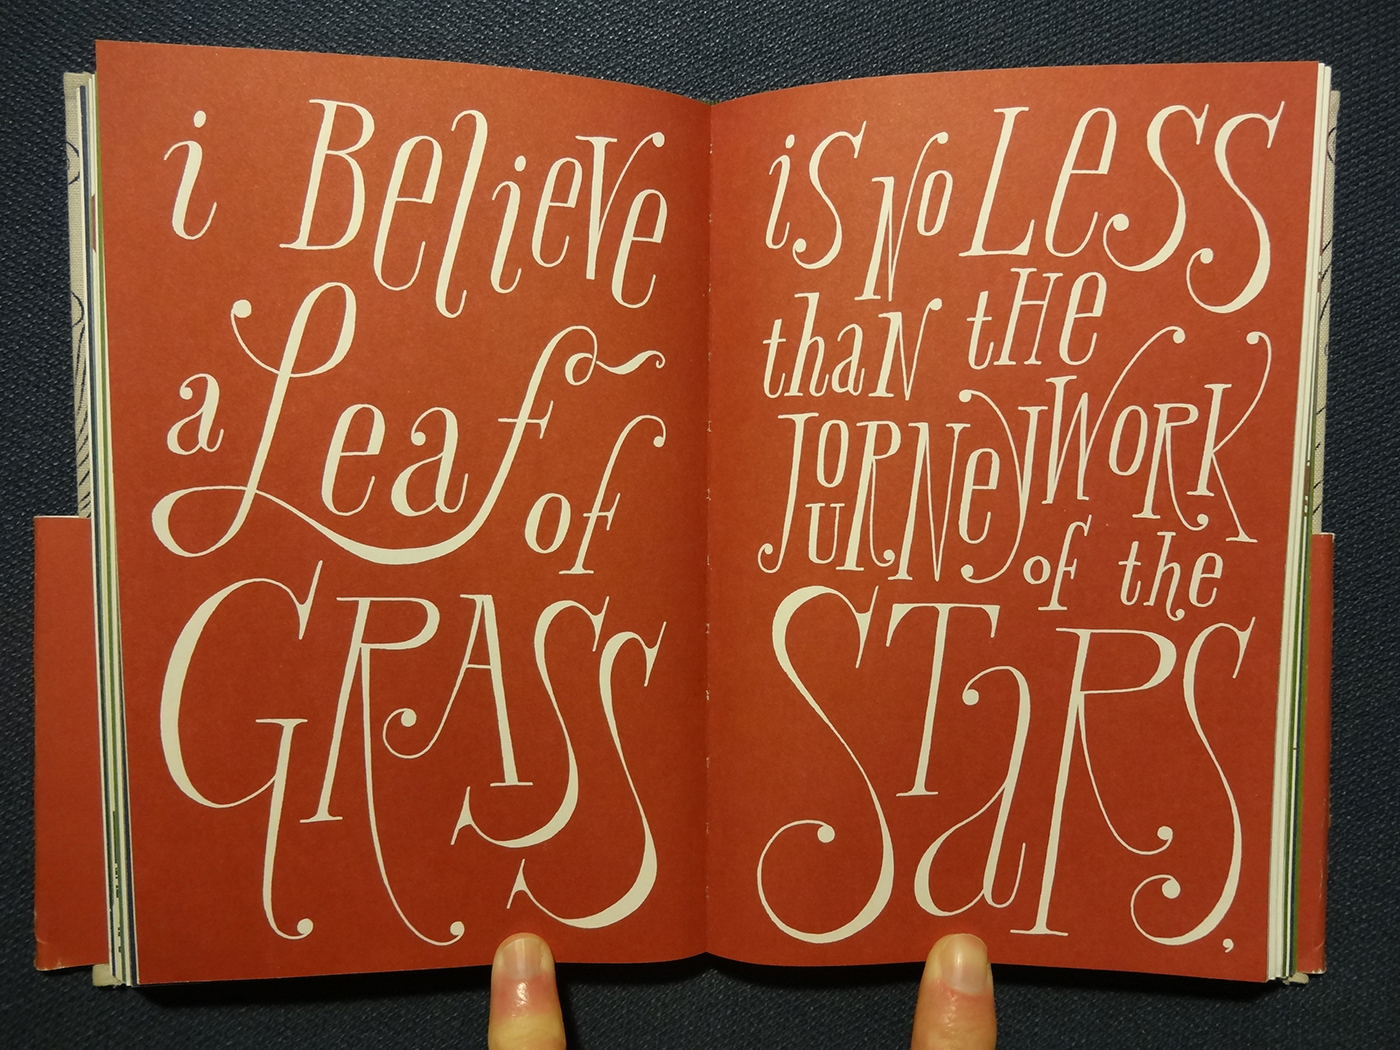 i Believe
a Leaf of
GRASS
iS No LeSS
thaN tHe
JOURNeyWORK
of the
STaRS,